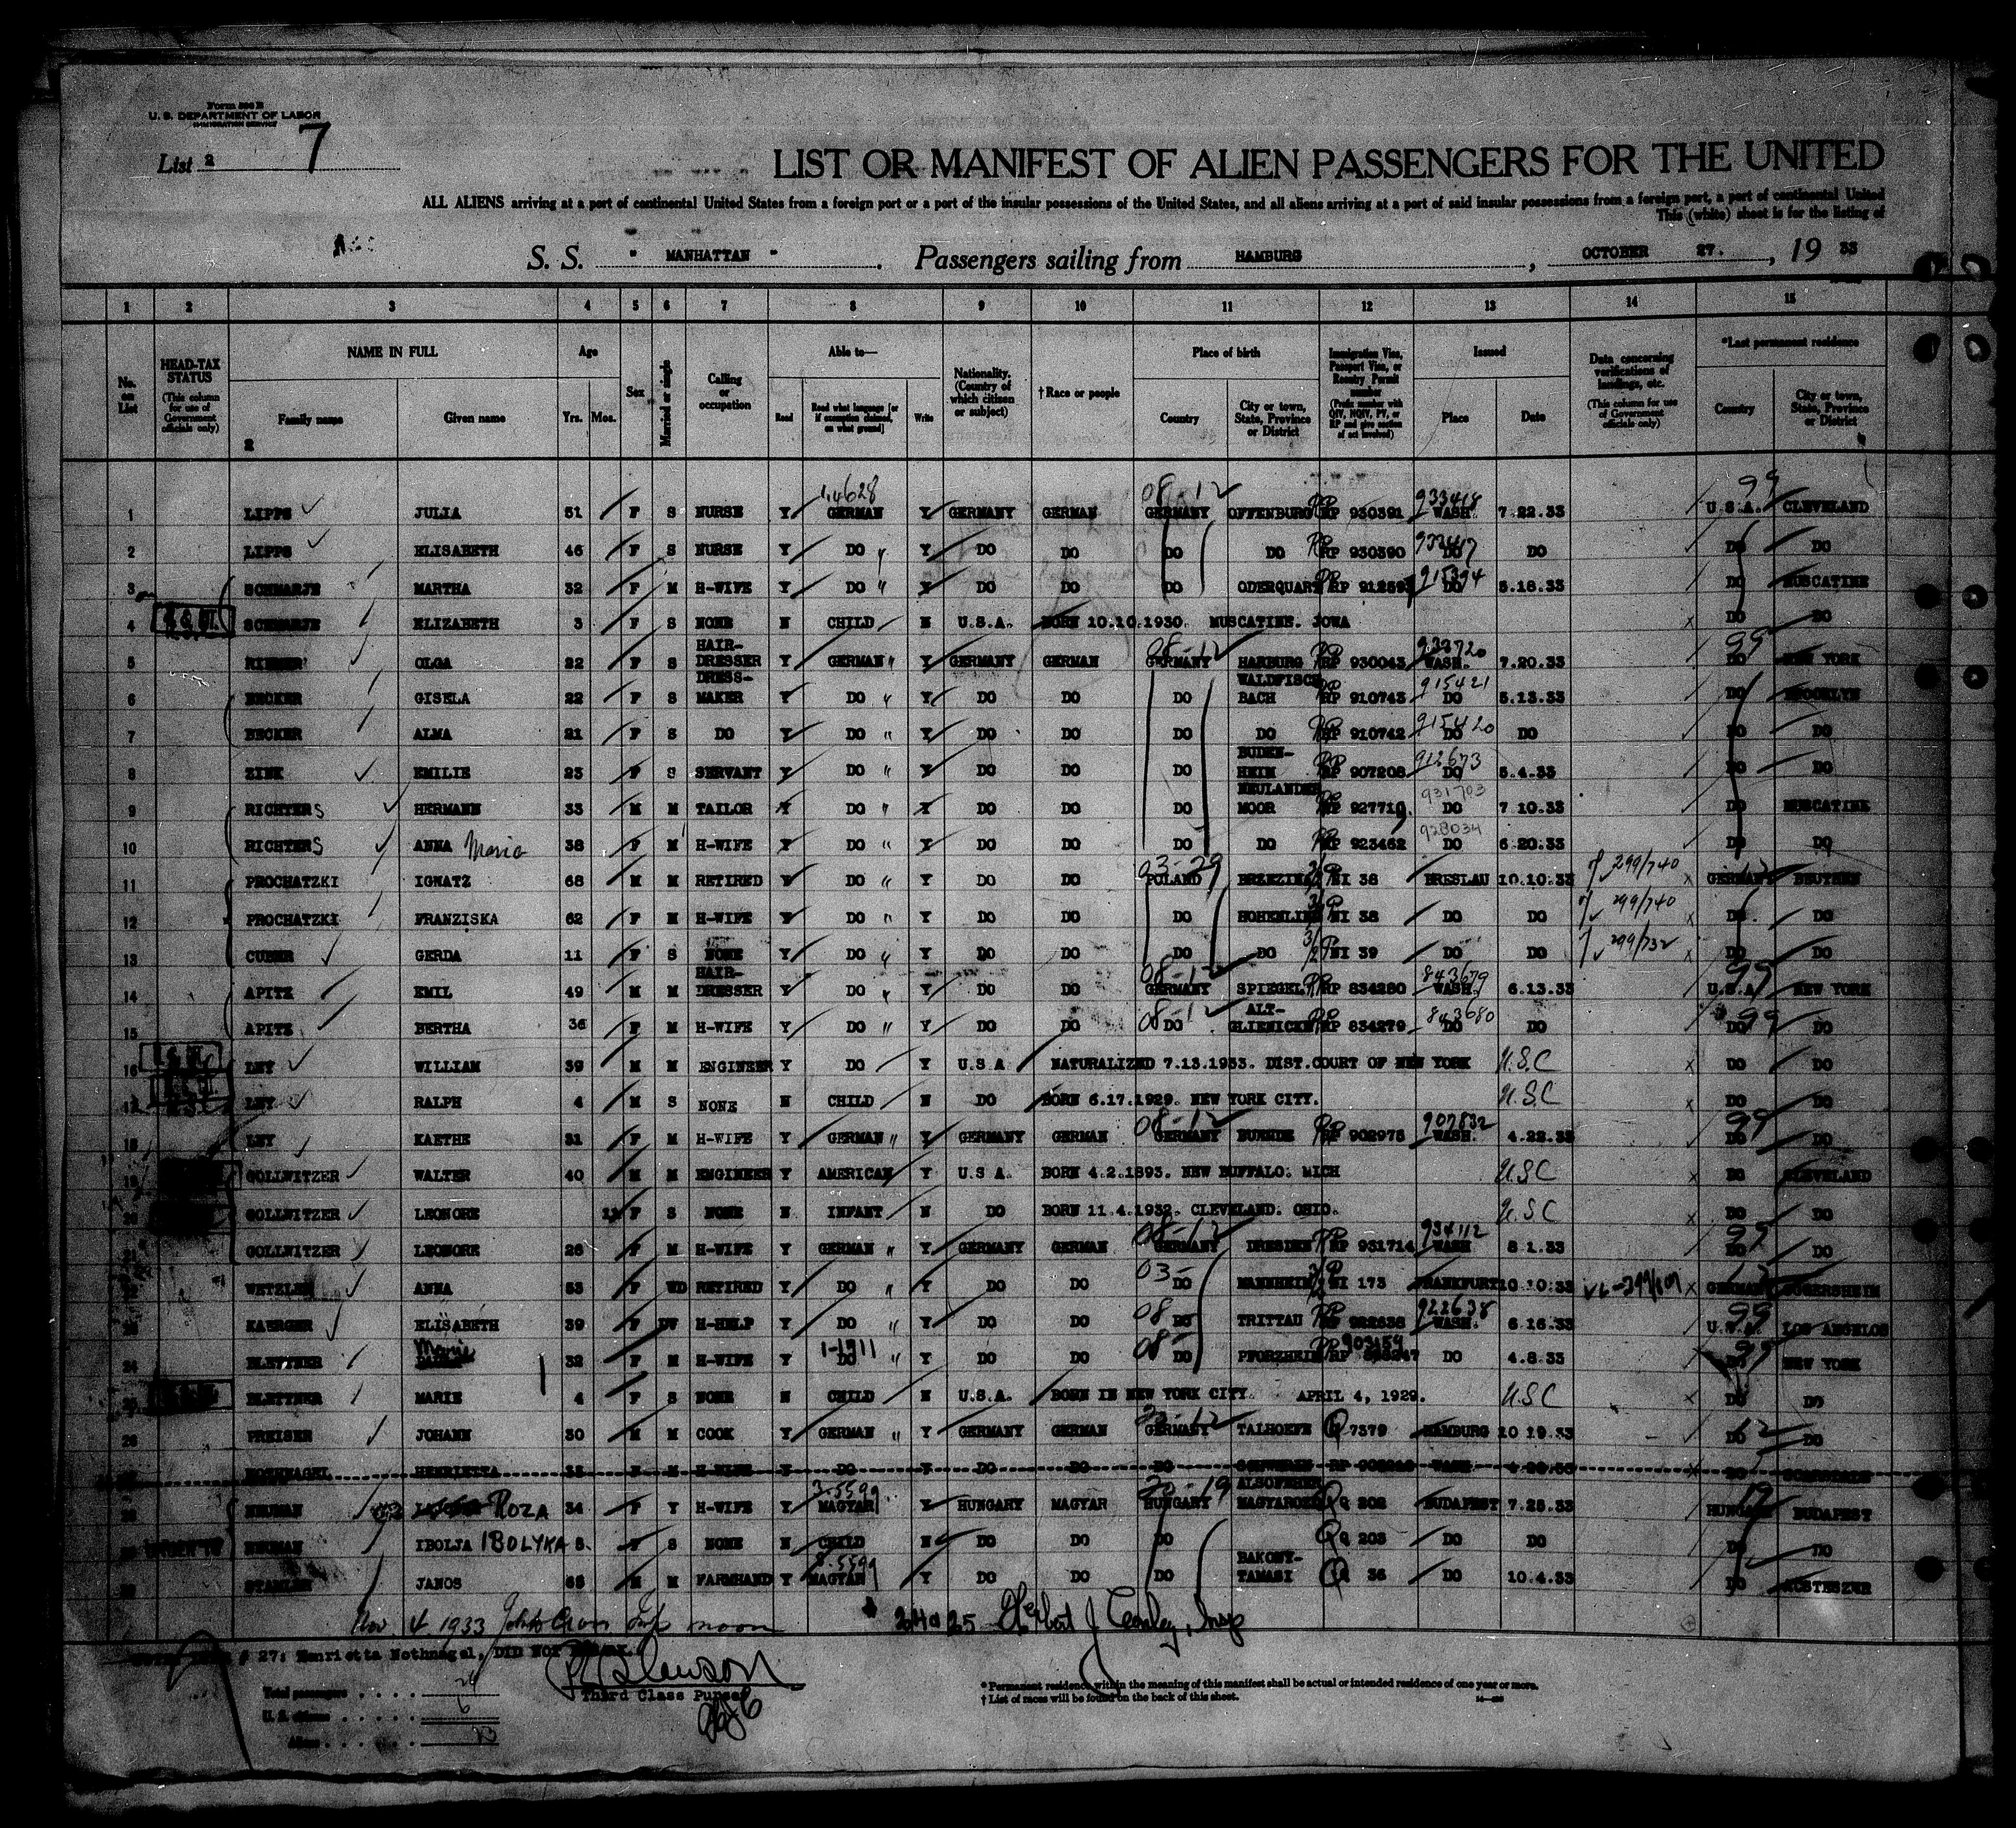 Form 500 B
U. S. DEPARTMENT OF LABOR
IMMIGRATION SERVICE
List 2 7
LIST OR MANIFEST OF ALIEN PASSENGERS FOR THE UNITED
ALL ALIENS arriving at a port of continental United States from a foreign port or a port of the insular possessions of the United States, and all aliens arriving at a port of said insular possessions from a foreign port, a port of continental United
This (white) sheet is for the listing of
S. S. " MANHATTAN " . Passengers sailing from HAMBURG , OCTOBER 27. , 19 33
1 2 3 4 5 6 7 8 9 10 11 12 13 14 15
No. on List HEAD-TAX STATUS (This column for use of Government officials only) NAME IN FULL Family name Given name Age Yrs. Mos. Sex Married or single Calling or occupation Able to— Read Read what language [or if exemption claimed, on what ground] Write Nationality. (Country of which citizen or subject) †Race or people Place of birth Country City or town, State, Province or District Immigration Visa, Passport Visa, or Reentry Permit number (Prefix number with QIV, NQIV, PV, or RP and give section of act involved) Issued Place Date Data concerning verifications of landings, etc. (This column for use of Government officials only) *Last permanent residence Country City or town, State, Province or District
2
1 LIPPS JULIA 51 F S NURSE Y GERMAN Y GERMANY GERMAN 08-12 GERMANY OFFENBURG RP 930391 933418 WASH. 7.22.33 99 U.S.A. CLEVELAND
2 LIPPS ELISABETH 46 F S NURSE Y DO " Y DO DO DO DO RP 930390 933417 DO DO DO DO
3 SCHMARJE MARTHA 32 F M H-WIFE Y DO " Y DO DO DO ODERQUART RP 915394 DO 5.18.33 DO MUSCATINE
4 SCHMARJE ELIZABETH 3 F S NONE N CHILD N U.S.A. BORN 10.10.1930. MUSCATINE. IOWA DO DO
5 OLGA 22 F S HAIR-DRESSER Y GERMAN " Y GERMANY GERMAN 08-12 GERMANY HARBURG RP 930043 WASH. 7.20.33 99 DO NEW YORK
6 BECKER GISELA 22 F S DRESS-MAKER Y DO " Y DO DO DO WALDFISCHBACH RP 910743 915421 DO 5.13.33 DO BROOKLYN
7 BECKER ALMA 21 F S DO Y DO " Y DO DO DO DO RP 910742 915420 DO DO DO DO
8 ZINK EMILIE 23 F S SERVANT Y DO " Y DO DO DO BUDENHEIM RP 907208 912673 DO 5.4.33 DO DO
9 RICHTERS HERMANN 33 M M TAILOR Y DO " Y DO DO DO NEULANDERMOOR RP 927719 931703 DO 7.10.33 DO MUSCATINE
10 RICHTERS ANNA Maria 38 F M H-WIFE Y DO " Y DO DO DO DO RP 923462 928034 DO 6.20.33 DO DO
11 PROCHATZKI IGNATZ 68 M M RETIRED Y DO " Y DO DO 03-29 POLAND BRZEZINA NI 38 BRESLAU 10.10.33 299/740 GERMANY BEUTHEN
12 PROCHATZKI FRANZISKA 62 F M H-WIFE Y DO " Y DO DO DO HOHENLINDE NI 38 DO DO 299/740 DO DO
13 CUBER GERDA 11 F S NONE Y DO " Y DO DO DO DO NI 39 DO DO 299/732 DO DO
14 APITZ EMIL 49 M M HAIR-DRESSER Y DO " Y DO DO 08-12 GERMANY SPIEGEL RP 834280 843679 WASH. 6.13.33 99 U.S.A. NEW YORK
15 APITZ BERTHA 36 F M H-WIFE Y DO " Y DO DO 08-12 DO ALT-GLIENICKE RP 834279 843680 DO DO 99 DO DO
16 LEY WILLIAM 39 M M ENGINEER Y DO Y U.S.A NATURALIZED 7.13.1933. DIST.COURT OF NEW YORK U.S.C DO DO
17 LEY RALPH 4 M S NONE N CHILD N DO BORN 6.17.1929. NEW YORK CITY. U.S.C DO DO
18 LEY KAETHE 31 F M H-WIFE Y GERMAN " Y GERMANY GERMAN 08-12 GERMANY RP 902973 907832 WASH. 4.22.33 99 DO DO
19 GOLLWITZER WALTER 40 M M ENGINEER Y AMERICAN Y U.S A. BORN 4.2.1893. NEW BUFFALO. MICH USC DO CLEVELAND
20 GOLLWITZER LEONORE 11 F S NONE N INFANT N DO BORN 11.4.1932. CLEVELAND. OHIO. U.S.C DO DO
21 GOLLWITZER LEONORE 26 F M H-WIFE Y GERMAN " Y GERMANY GERMAN 08-12 GERMANY DRESDEN RP 931714 934112 WASH 8.1.33 99 DO DO
22 WETZLER ANNA 53 F WD RETIRED Y DO " Y DO DO 03- DO MANNHEIM NI 173 FRANKFURT 10.10.33 GERMANY OGGERSHEIM
23 KAERGER ELISABETH 39 F DV H-HELP Y DO " Y DO DO 08 DO TRITTAU RP 922638 WASH. 6.16.33 99 U.S.A. LOS ANGELOS
24 BLETTNER Marie 32 F M H-WIFE Y DO " Y DO DO 08- DO PFORZHEIM RP DO 4.8.33 99 DO NEW YORK
25 BLETTNER MARIE 4 F S NONE N CHILD N U.S.A. BORN IN NEW YORK CITY. APRIL 4, 1929. USC DO DO
26 PREISER JOHANN 30 M M COOK Y GERMAN " Y GERMANY GERMAN GERMANY TALHOEFE Q 7379 HAMBURG 10 19.33 12 DO DO
27 NOTHNAGEL HENRIETTA F M H-WIFE Y DO Y DO DO DO RP WASH
28 NEUMAN ROZA 34 F Y H-WIFE Y MAGYAR Y HUNGARY MAGYAR 20-19 HUNGARY Q 202 BUDAPEST 7.28.33 19 HUNGARY BUDAPEST
29 NEUMAN IBOLJA IBOLYKA 5. F S NONE N CHILD N DO DO DO Q 203 DO DO DO DO
30 JANOS M M FARMHAND Y MAGYAR Y DO DO DO BAKONY-TAMASI Q 36 DO 10.4.33 DO
Nov 4 1933 noon 24 a 25 Herbert J
# 27: Henrietta Nothnagel, DID NOT
Third Class Purser
* Permanent residence within the meaning of this manifest shall be actual or intended residence of one year or more.
† List of races will be found on the back of this sheet.
Total passengers
U. S. citizens 6
Aliens 23